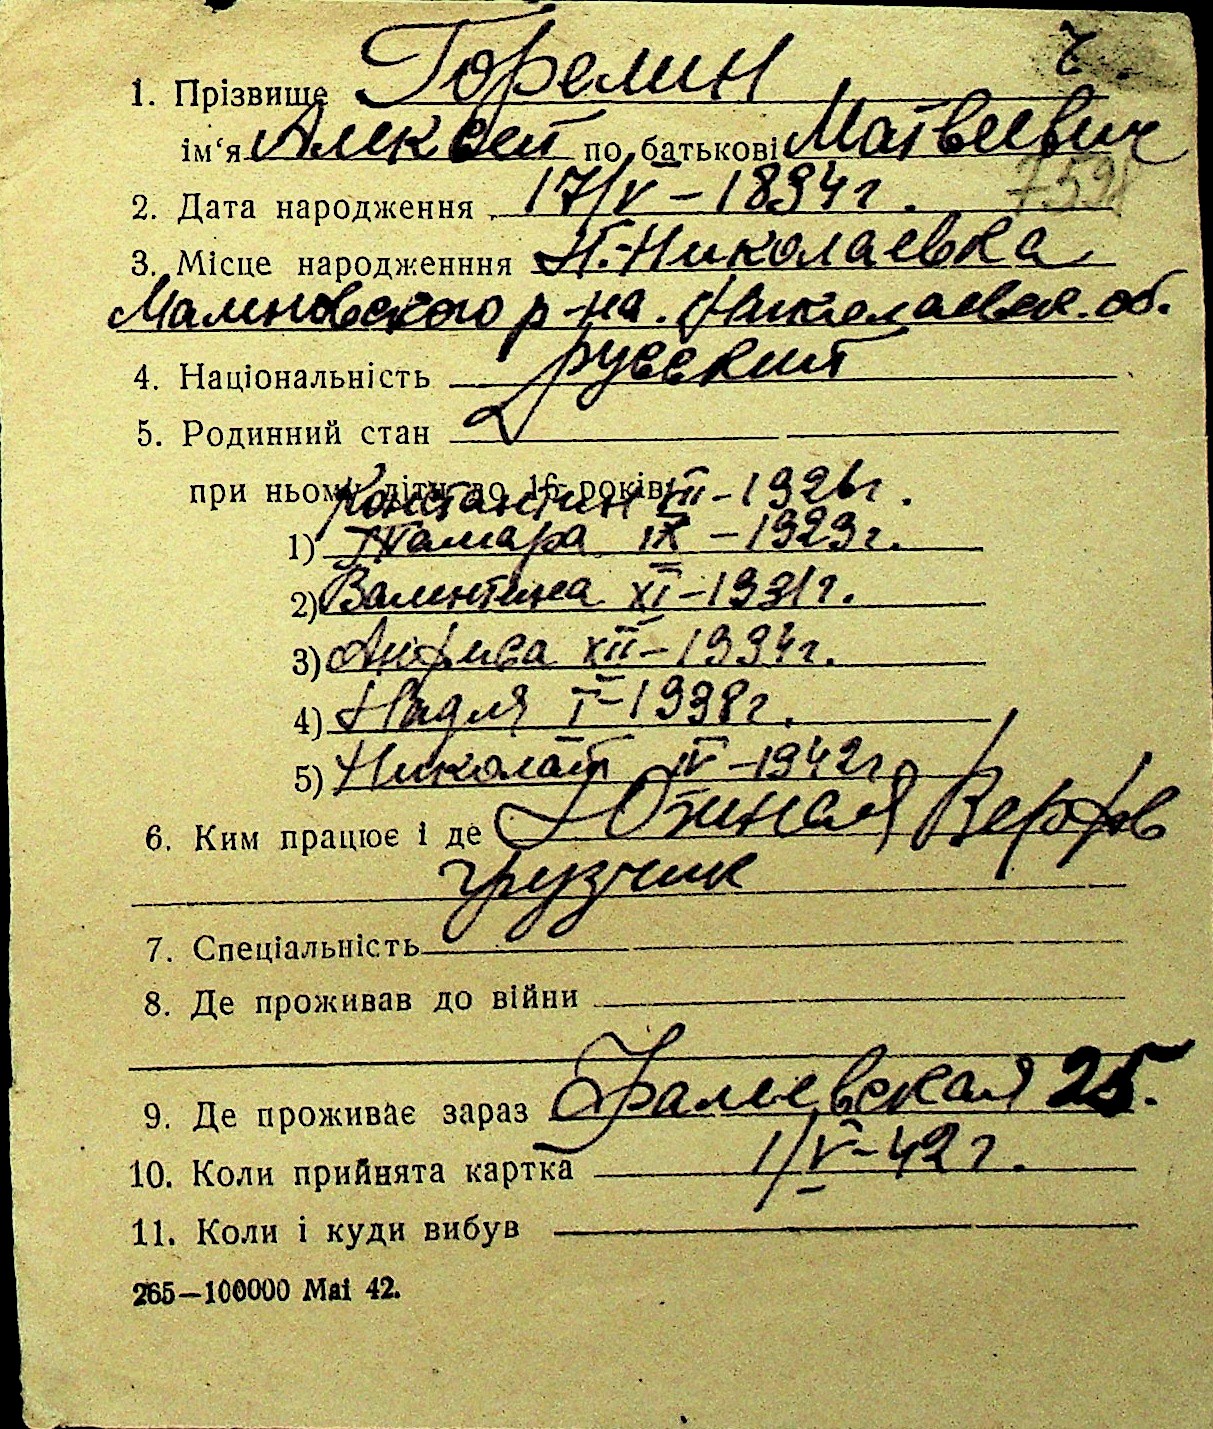 ч.
1. Прізвище Горелин
ім'я Алексей по батькові Матвеевич
7598
2. Дата народження 17/V – 1894 г.
3. Місце народженння Н.-Николаевка
Малиновского р-на. Николаевск. об.
4. Національність русский
5. Родинний стан
при ньому діти до 16 років:
Константин III – 1926 г.
1) Тамара IX – 1929 г.
2) Валентина XI – 1931 г.
3) Анфиса XII – 1934 г.
4) Надля I – 1938 г.
5) Николай IV – 1942 г.
6. Ким працює і де Южная Верфь
грузчик
7. Спеціальність
8. Де проживав до війни
9. Де проживає зараз Фалеевская 25.
10. Коли прийнята картка 1/V – 42 г.
11. Коли і куди вибув
265—100000 Mai 42.